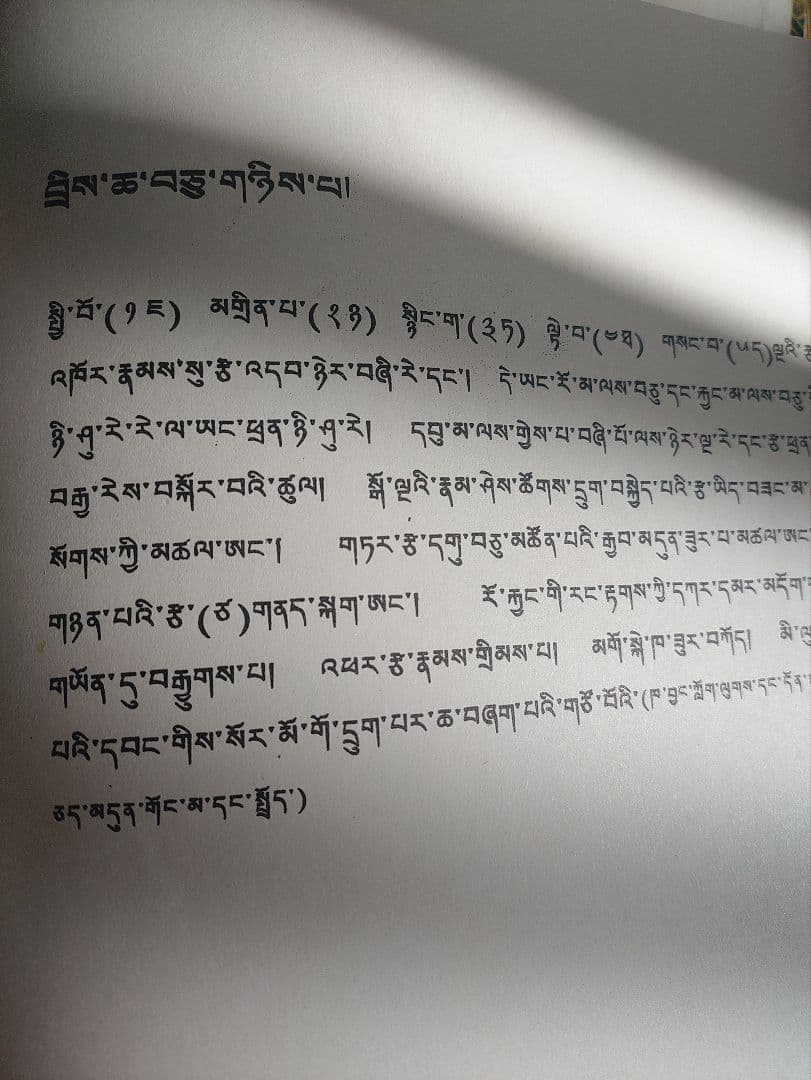 བྲིས་ཆ་བཅུ་གཉིས་པ།
སྤྱི་བོ་(༡ ཇ) མགྲིན་པ་(༢ ཉ) སྙིང་ག་(༣ ཏ) ལྟེ་བ་(༤ ཐ) གསང་བ་(༥ ད)ལྔའི་རྩ་
འཁོར་རྣམས་སུ་རྩ་འདབ་ཉེར་བཞི་རེ་དང་། དེ་ཡང་རོ་མ་ལས་བཅུ་དང་རྐྱང་མ་ལས་བཅུ་
ཉི་ཤུ་རེ་རེ་ལ་ཡང་ཕྲན་ཉི་ཤུ་རེ། དབུ་མ་ལས་གྱེས་པ་བཞི་པོ་ལས་ཉེར་ལྔ་རེ་དང་རྩ་ཕྲན་
བརྒྱ་རེས་བསྐོར་བའི་ཚུལ། སྒོ་ལྔའི་རྣམ་ཤེས་ཚོགས་དྲུག་བསྐྱེད་པའི་རྩ་ཡིད་བཟང་མ་
སོགས་ཀྱི་མཚལ་ཨང་། གཏར་རྩ་དགུ་བཅུ་མཚོན་པའི་རྒྱབ་མདུན་ཟུར་པ་མཚལ་ཨང་
གཉན་པའི་རྩ་(ཙ)གནད་སྐག་ཨང་། རོ་རྐྱང་གི་རང་རྟགས་ཀྱི་དཀར་དམར་མདོག་
གཡོན་དུ་བརྒྱུགས་པ། འཕར་རྩ་རྣམས་གྲིམས་པ། མགོ་སྐེ་ཁ་ཟུར་བཀོད། མི་
པའི་དབང་གིས་སོར་མོ་གོ་དྲུག་པར་ཆ་བཞག་པའི་གཙོ་བོའི་(ཁ་བྱང་ཀློག་ལུགས་དང་དོན་
ཅད་མདུན་གོང་མ་དང་སྤྲོད་)